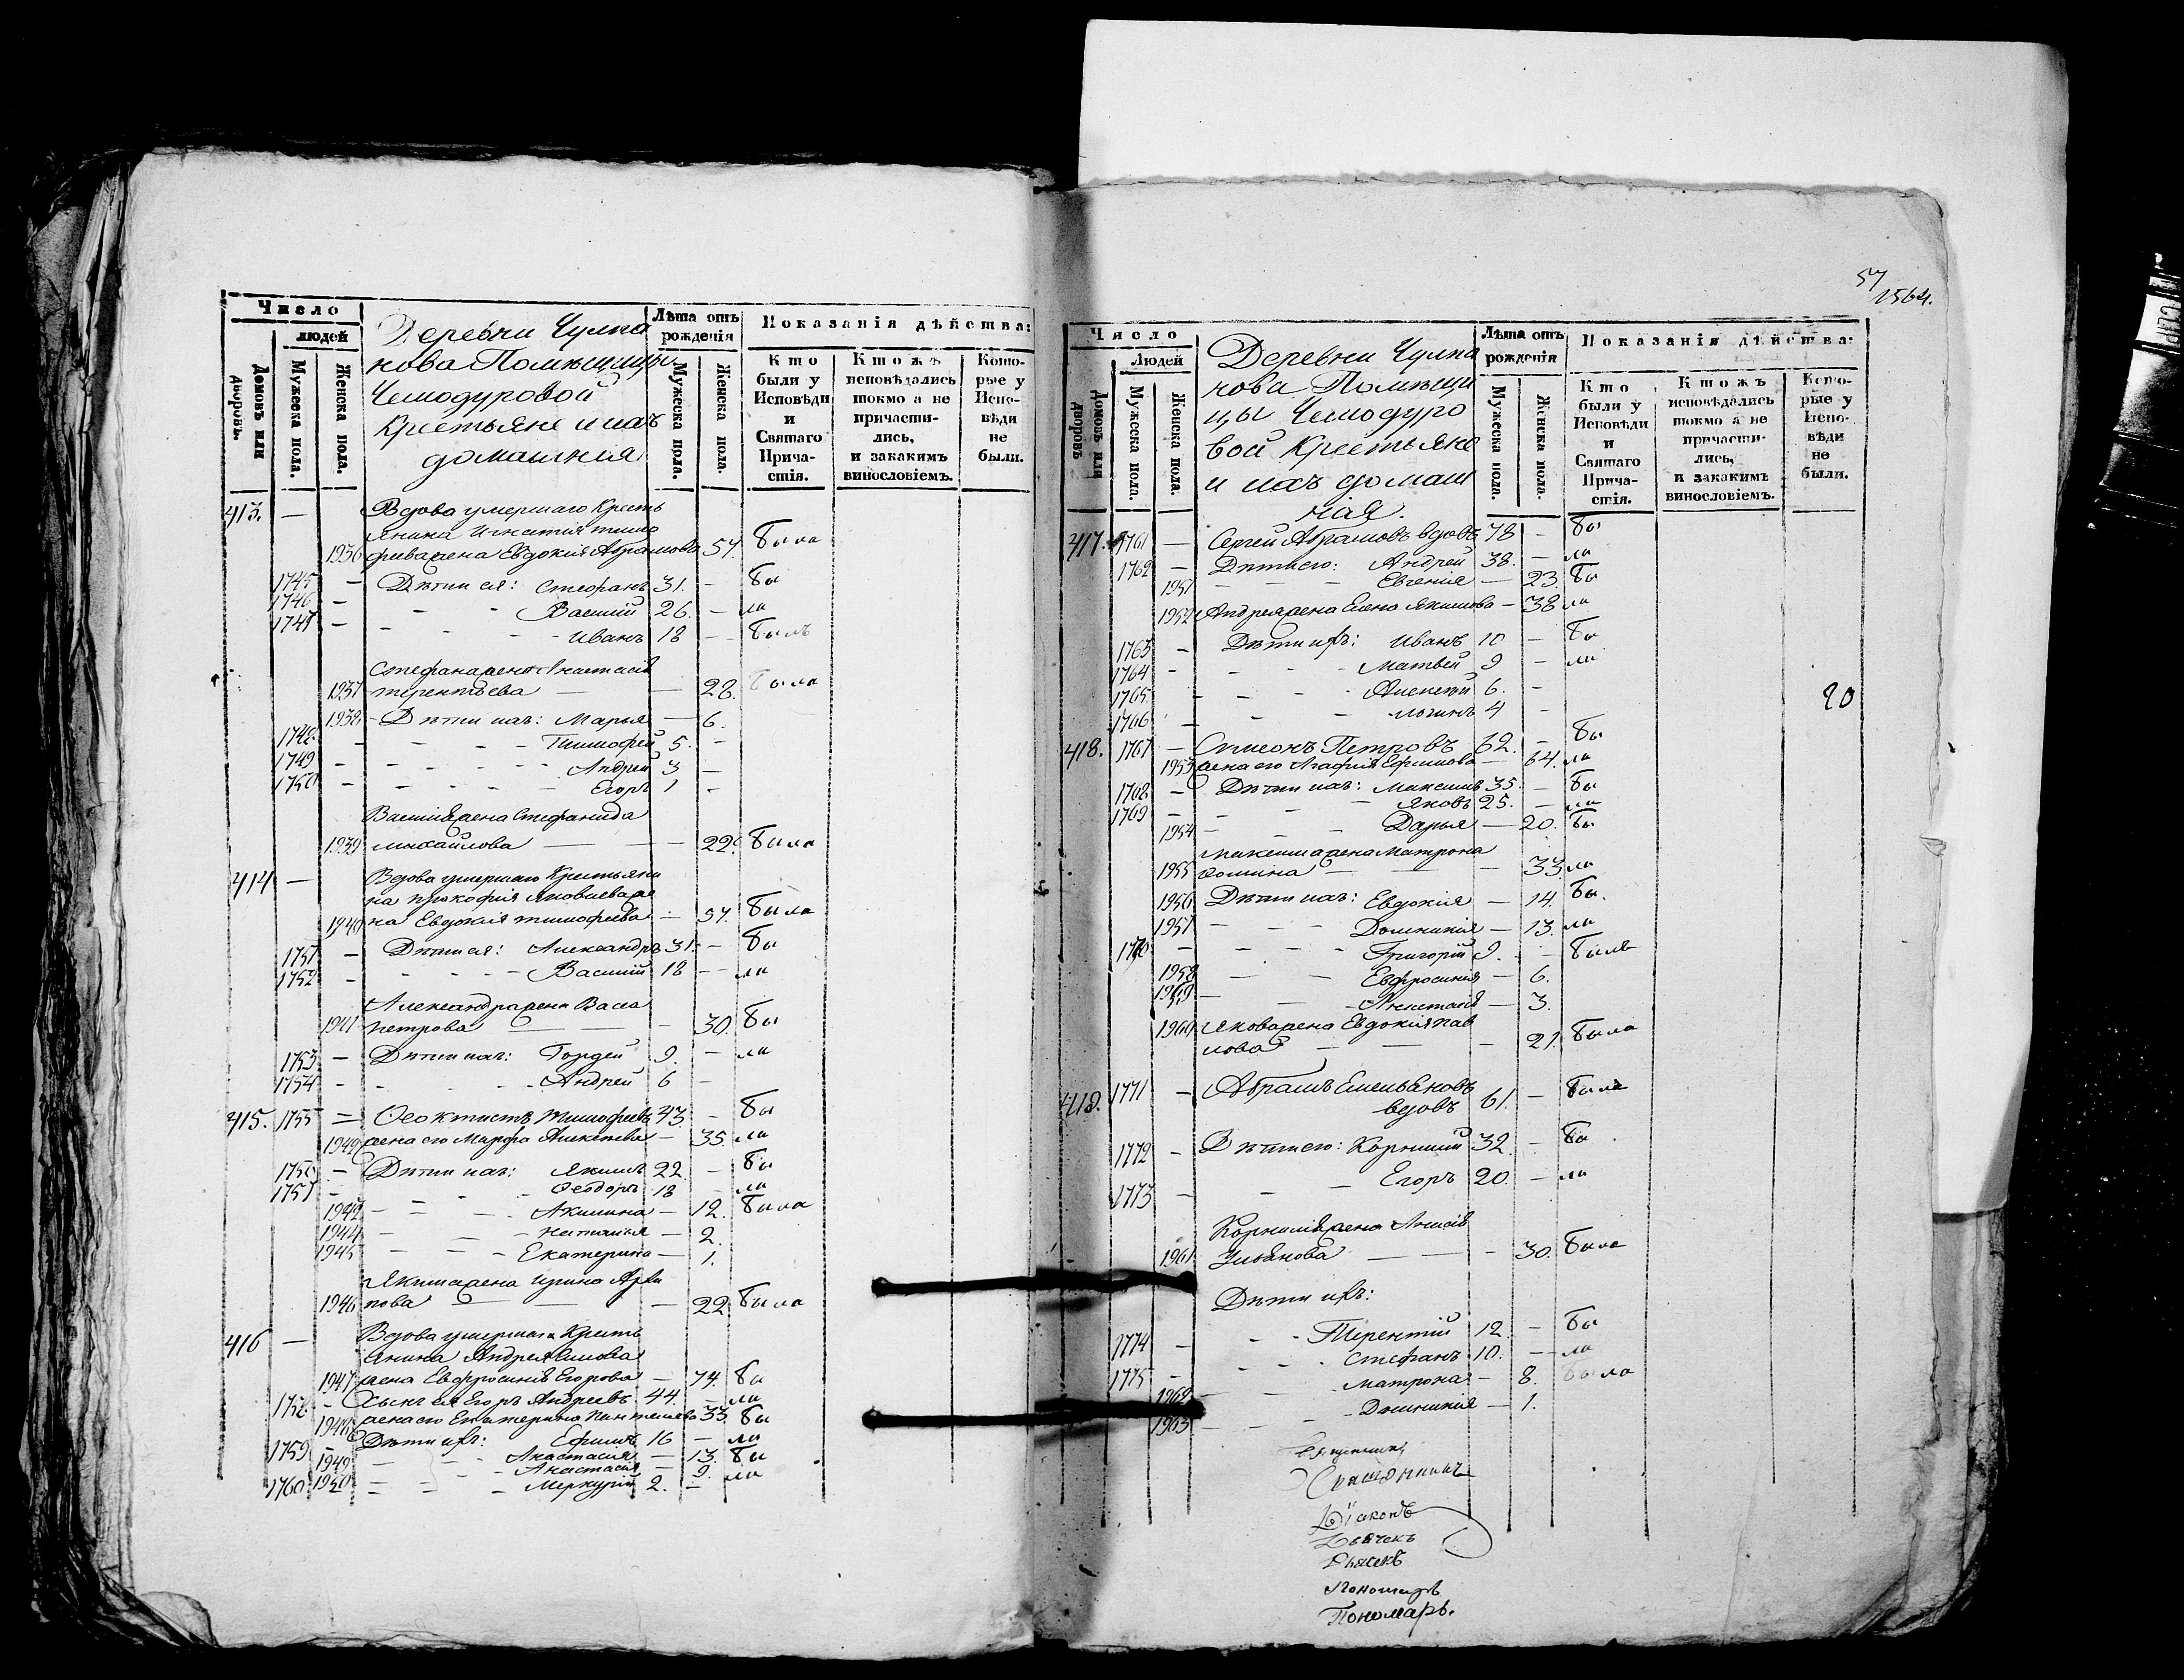 Число
людей
Домовъ или дворовъ.
Мужеска пола.
Женска пола.
Деревни Чулпа
нова Помѣщицы
Чемодуровой
Крестьяне и ихъ
домашнія
Лѣта отъ рожденія
Мужеска пола.
Женска пола.
Показанія дѣйства:
Кто были у Исповѣди и Святаго Причастія.
Ктожъ исповѣдались токмо а не причастились, и закакимъ винословіемъ.
Которые у Исповѣди не были.
413. — Вдова умершаго Кресть
янина Игнатія тимо
1936 феева жена Евдокія Абрамова 57. была
1745 — Дѣти ея: Стефанъ 31. — бы
1746 — Василій 26. — ли
1747 — Иванъ 18 — былъ
Стефана жена Анастасія
1937 терентьева — — 28. была
1938. — Дѣти ихъ: Марья — 6.
1748 — Тимофей 5. —
1749 — Андрей 3 —
1750 — Егоръ 1 —
Василія жена Стефанида
1939 михайлова — — 22. была
414 — Вдова умершаго Крестьяни
на прокофія яковлева же
1940 на Евдокія тимофеева — 57. была
1751 — Дѣти ея: Александръ 31. — бы
1752 — Василій 18 — ли
Александра жена Васса
1941 петрова — — 30. бы
1753 — Дѣти ихъ: Гордей 9. — ли
1754 — Андрей 6 —
415. 1755 — Феоктистъ Тимофеевъ 43. — бы
1942 жена его Марфа Алексѣева — 35. ли
1756 — Дѣти ихъ: Якимъ 22. — бы
1757 — Феодоръ 18 — ли
1943 — Акилина — 12. была
1944 — Наталья — 2.
1945 — Екатерина — 1.
Якима жена Ирина Архи
1946 пова — — 22 была
416 — Вдова умершаго Кресть
янина Андрея
1947 жена Евфросинія Егорова — 74. бы
1758 — Сынъ ея Егоръ Андреевъ 44. — ли
1948 жена его Екатерина Пантелеева 33. бы
1759 — Дѣти ихъ: Ефимъ 16 — ли
1949 — Анастасія — 13. бы
1950 — Анастасія — 9. ли
1760 — Меркурій 2. —
57
1564.
Число
Людей
Домовъ или дворовъ
Мужеска пола.
Женска пола.
Деревни Чулпа
нова Помѣщи
цы Чемодуро
вой Крестьяне
и ихъ домаш
нія.
Лѣта отъ рожденія
Мужеска пола.
Женска пола.
Показанія дѣйства:
Кто были у Исповѣди и Святаго Причастія.
Ктожъ исповѣдались токмо а не причастились, и закакимъ винословіемъ.
Которые у Исповѣди не были.
417. 1761 — Сергей Абрамовъ вдовъ 78 — бы
1762 — Дѣти его: Андрей 38. — ли
1951 — Евгенія — 23. бы
1952 Андрея жена Елена Якимова — 38 ли
1763 — Дѣти ихъ: Иванъ 10 — бы
1764 — Матвей 9 — ли
1765 — Алексѣй 6. —
1766 — логинъ 4 —
20
418. 1767 — Симеонъ Петровъ 62. — бы
1953 жена его Агафія Ефимова — 64. ли
1768 — Дѣти ихъ: Максимъ 35. — бы
1769 — Яковъ 25. — ли
1954 — Дарья — 20. бы
Максима жена Матрона
1955 Фомина — — 33. ли
1956 Дѣти ихъ: Евдокія — 14. бы.
1957 — Домникія — 13. ли
1770 — Григорій 9. — былъ
1958 — Евфросинія — 6.
1959 — Анастасія — 3.
1960 Якова жена Евдокія пав
лова — — 21. была
419. 1771 — Абрамъ Емельяновъ
вдовъ 61. — былъ
1772 — Дѣти его: Корнилій 32. — бы
1773 — Егоръ 20. — ли
Корнилія жена Анисія
1961 Ульянова — — 30. была
Дѣти ихъ:
1774 — Терентій 12. — бы
1775 — Стефанъ 10. — ли
1962 — Матрона — 8. была
1963 — Домникія — 1.
Священникъ
Діаконъ
Дьячекъ
Дьячекъ
Пономарь
Пономарь.